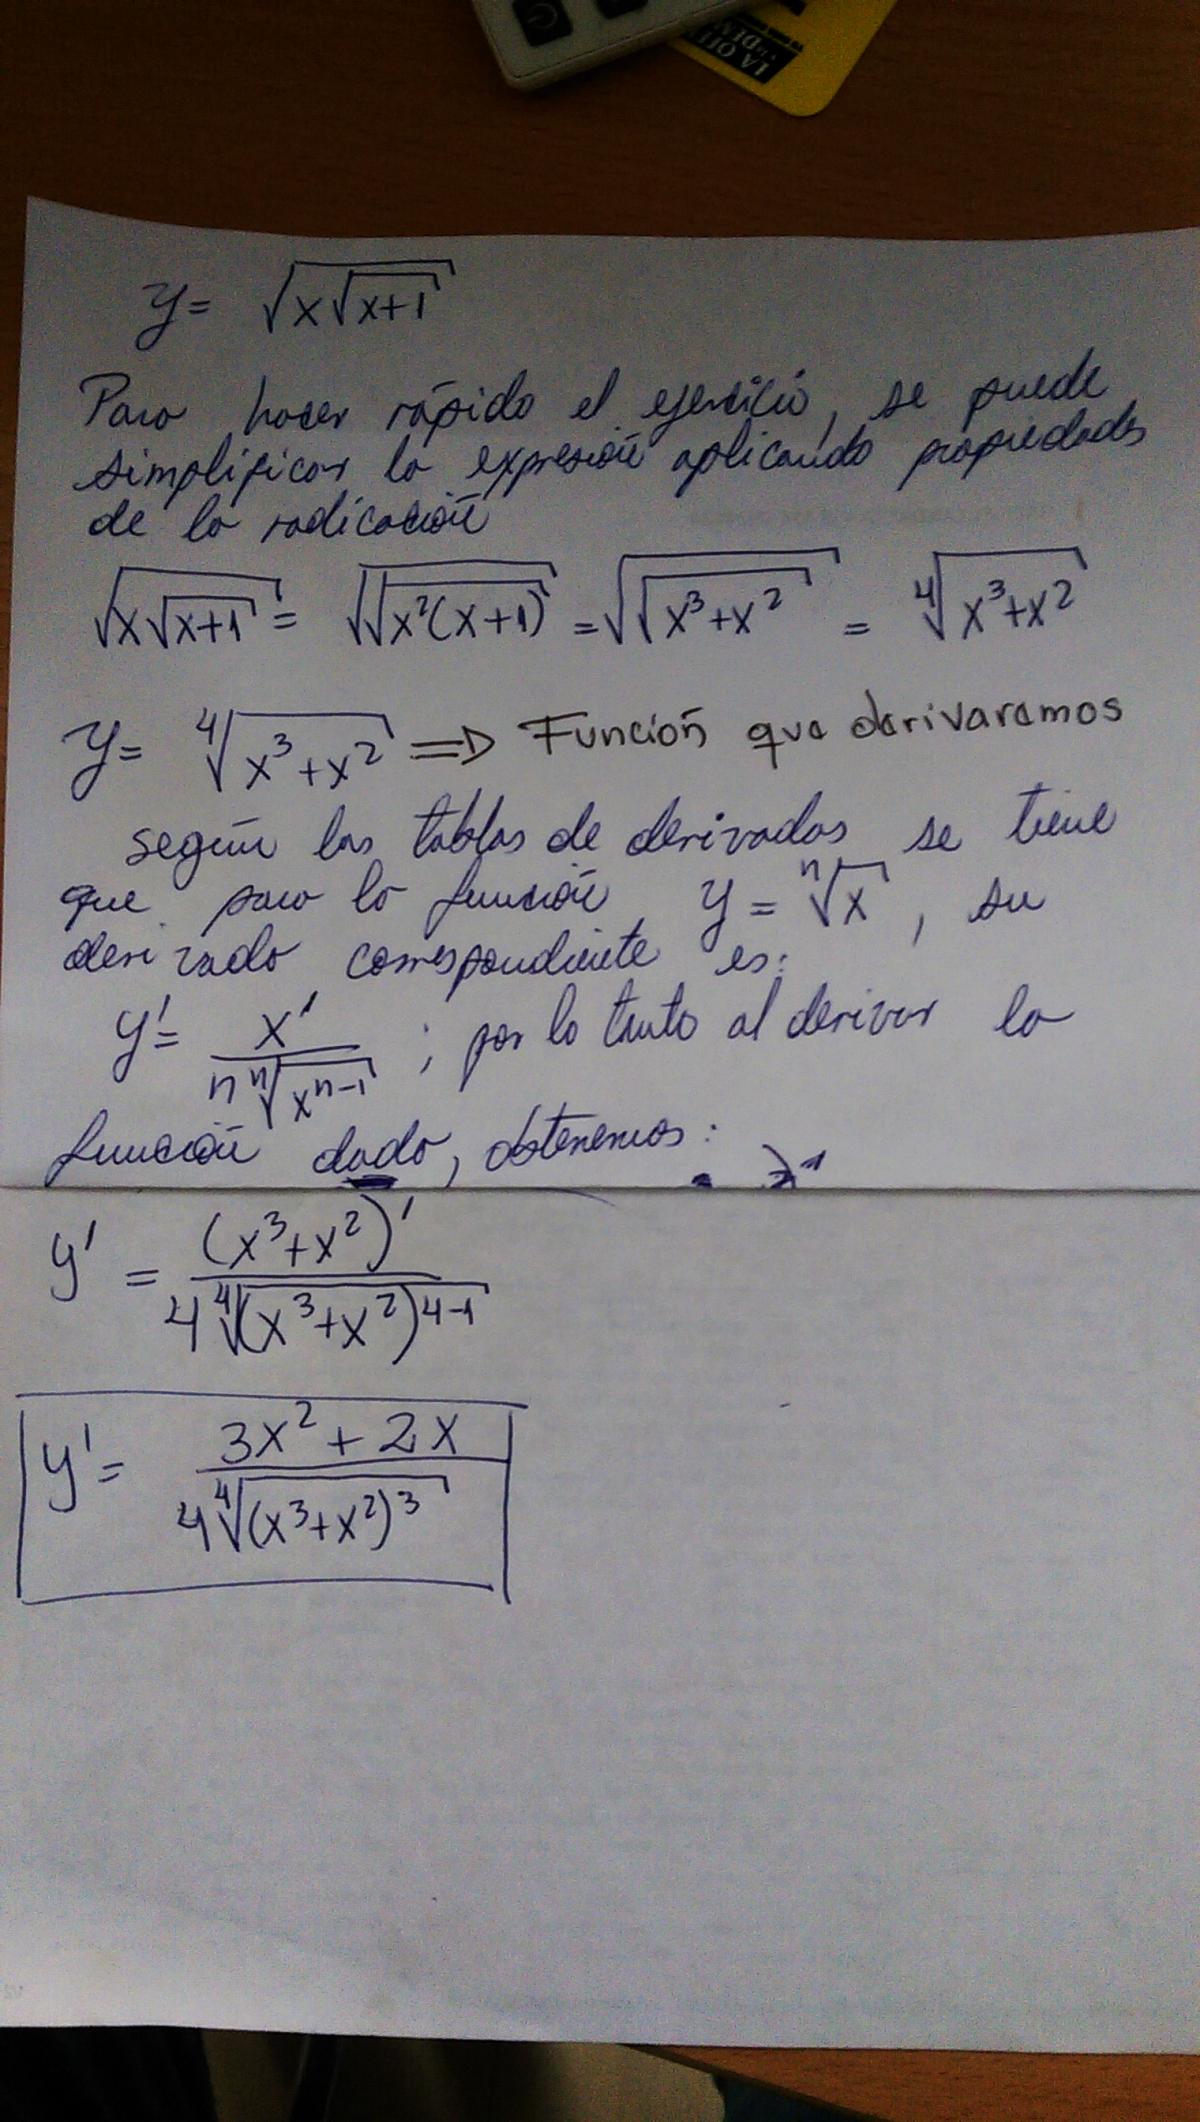 LA OFI
y = √(x√(x+1))
Para hacer rápido el ejercicio, se puede
simplificar la expresión aplicando propiedades
de la radicación
√(x√(x+1)) = √(√(x²(x+1))) = √(√(x³+x²)) = ⁴√(x³+x²)
y = ⁴√(x³+x²) ⇒ Función que derivaramos
según las tablas de derivadas se tiene
que para la función y = ⁿ√x, su
derivada correspondiente es:
y' = x' / (n ⁿ√(xⁿ⁻¹)) ; por lo tanto al derivar la
función dada, obtenemos:
y' = (x³+x²)' / (4 ⁴√((x³+x²)⁴⁻¹))
y' = (3x² + 2x) / (4 ⁴√((x³+x²)³))